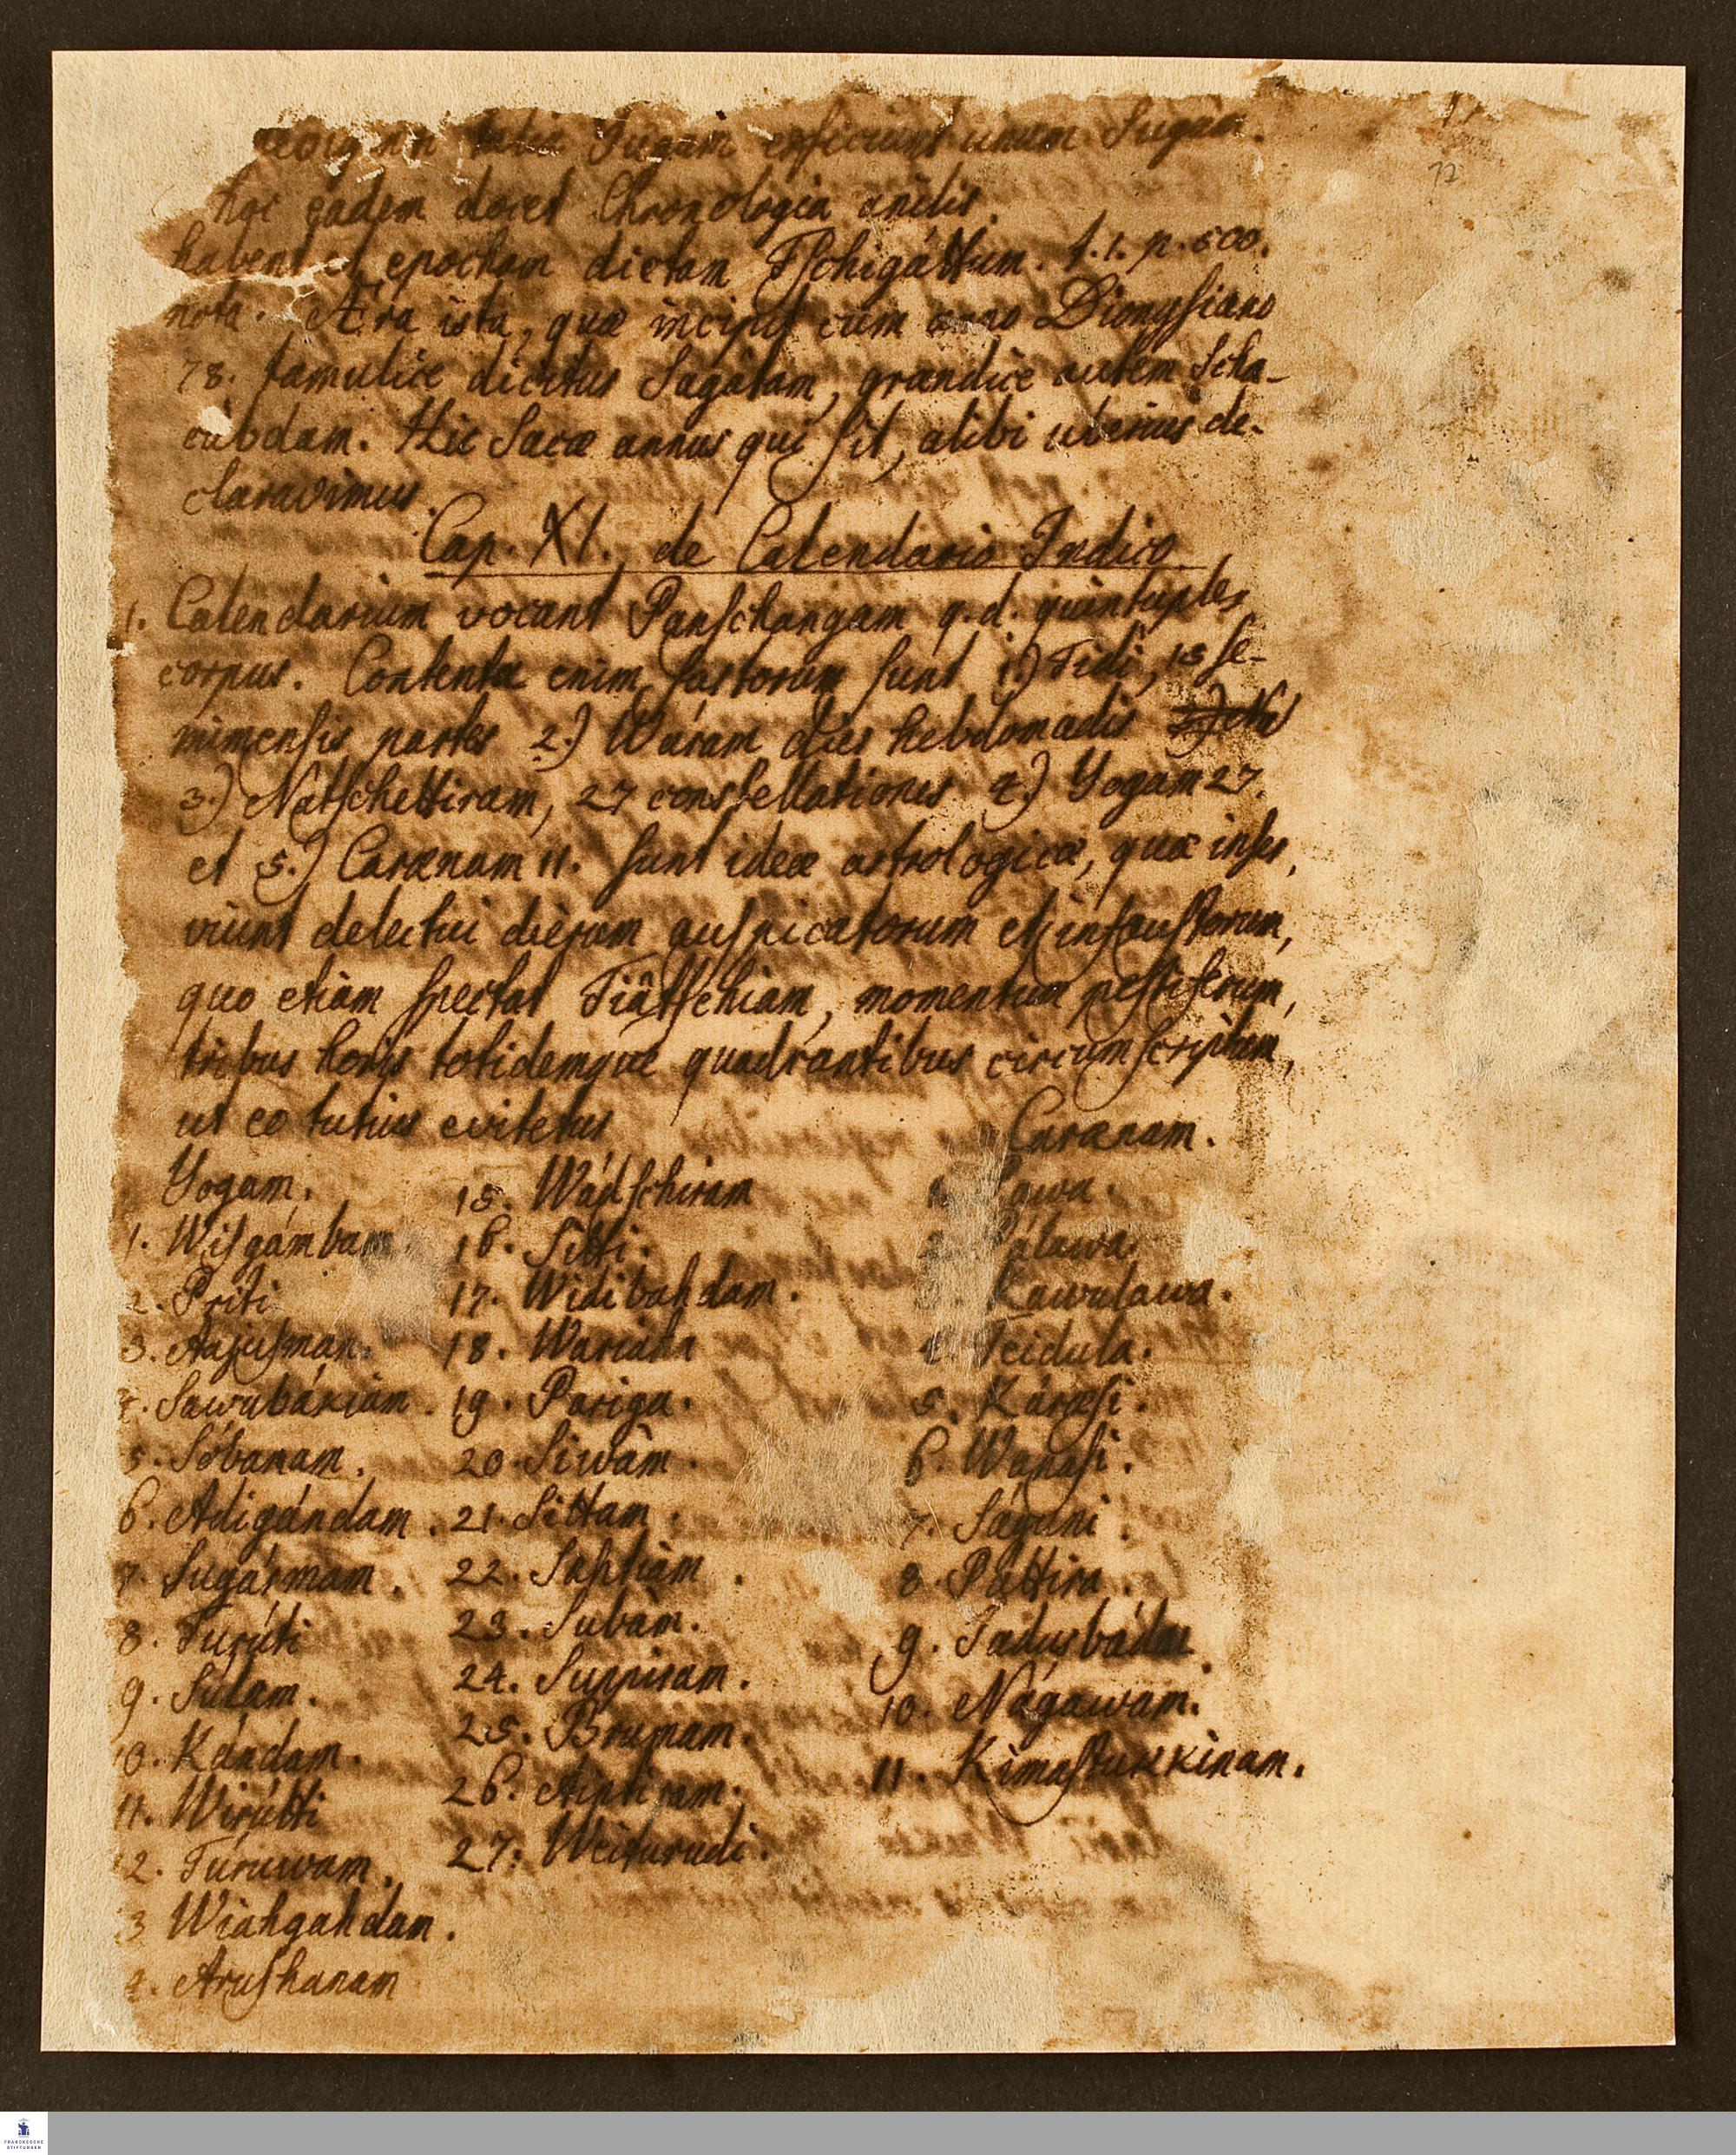 Jugam efficiunt unum Jugam.
hac eadem docet Chronologia anilis.
habent et epocham dictam Tschigáttum. t. 1. p. 500.
nota. Æra ista, quæ incipit cum anno Dionysiano
78. tamulice dicitur Sagátam, grandice autem Scha-
cabdam. Hic Sacæ annus qui sit, alibi uberius de-
claravimus.
Cap. XI. de Calendario Indico.
1. Calendarium vocant Panschangam q. d. quintuplex
corpus. Contenta enim fastorum sunt 1.) Tidi, 15 se-
mimensis partes 2.) Wáram dies hebdomadis
3.) Natschettiram, 27 constellationes 4.) Yogam 27.
et 5.) Caranam 11. sunt ideæ astrologicæ, quæ inser,
viunt delectui dierum auspicatorum et infaustorum,
quo etiam spectat Tiâtschiam, momentum pestiferum,
tribus horis totidemque quadrantibus circumscriptum,
ut eo tutius evitetur
Yogam.
1. Wisgámbam.
2. Priti
3. Aajusman.
4. Sawubákiam.
5. Sóbanam.
6. Adigándam.
7. Sugármam.
8. Turúti
9. Súlam.
10. Kándam.
11. Wirútti
12. Túruwam.
13 Wiahgahdam.
14. Arushanam
15. Wádschiram
16. Sitti.
17. Widibahdam.
18. Wariahn
19. Pariga.
20. Siwàm.
21. Sittam.
22. Sahtiàm.
23. Subàm.
24. Suppiram.
25. Bramam.
26. Aintiram.
27. Weiturudi.
Caranam.
1. Pawa.
2. Pálawa.
3. Kawulawa.
4. Teidula.
5. Kárasi.
6. Wanasi.
7. Ságuni.
8. Páttira.
9. Sadusbáda.
10. Nágawam.
11. Kimastukkinam.
72
FRANCKESCHE
STIFTUNGEN